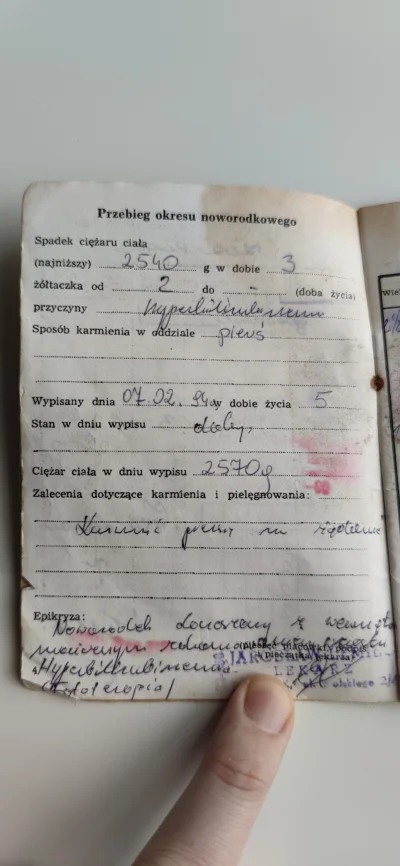 Przebieg okresu noworodkowego
Spadek ciężaru ciała
(najniższy) 2540 g w dobie 3
żółtaczka od 2 do - (doba życia)
przyczyny Hyperbilirubinemia
Sposób karmienia w oddziale pierś
Wypisany dnia 07.02.94 w dobie życia 5
Stan w dniu wypisu dobry
Ciężar ciała w dniu wypisu 2570g
Zalecenia dotyczące karmienia i pielęgnowania:
Karmić piersią na żądanie
Epikryza:
Noworodek donoszony z wewnątrz
macicznym
Hyperbilirubinemia
LEKARZ
(fototerapia)